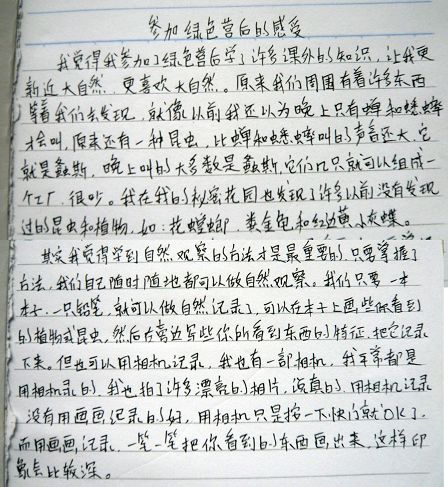 参加绿色营后的感受
我觉得我参加了绿色营后学了许多课外的知识，让我更
新近大自然，更喜欢大自然。原来我们周围有着许多东西
等着我们去发现，就像以前我还以为晚上只有蝉和蟋蟀
才会叫，原来还有一种昆虫，比蝉和蟋蟀叫的声音还大，它
就是螽斯，晚上叫的大多数是螽斯，它们几只就可以组成一
个工厂，很吵。我在我的秘密花园也发现了许多以前没有发现
过的昆虫和植物，如：花螳螂、黄金龟和红边黄小灰蝶。
其实我觉得学到自然观察的方法才是最重要的，只要掌握了
方法，我们自己随时随地都可以做自然观察。我们只要一本
本子，一只铅笔，就可以做自然记录了，可以在本子上画些你看到
的植物或昆虫，然后在旁边写些你所看到东西的特征，把它记录
下来。但也可以用相机记录，我也有一部相机，我平常都是
用相机录的，我也拍了许多漂亮的相片，说真的，用相机记录
没有用画画记录的好，用相机只是按一下快门就OK了，
而用画画记录，一笔一笔把你看到的东西画出来，这样印
象会比较深。